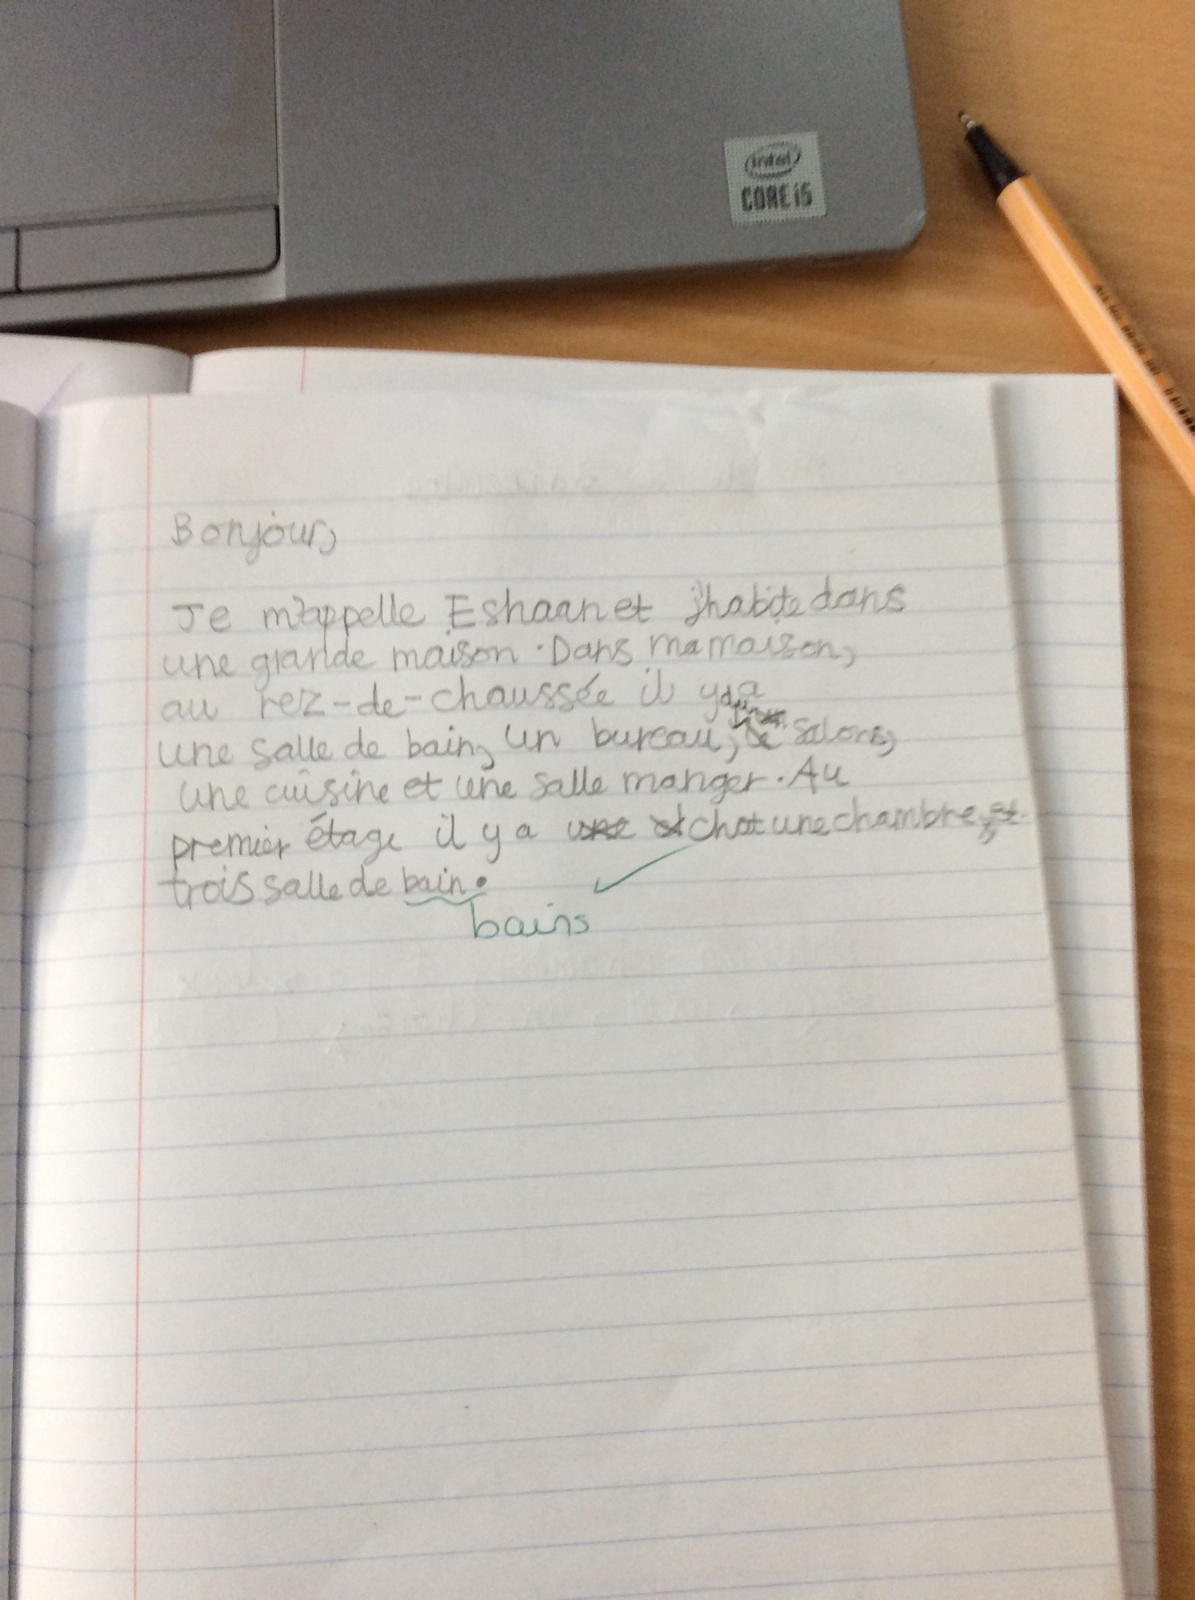 intel
CORE i5
Bonjour,
Je m'appelle Eshaan et j'habite dans
une grande maison. Dans ma maison,
au rez-de-chaussée il y a
une salle de bain, un bureau, salons,
une cuisine et une salle manger. Au
premier étage il y a chat une chambre, et
trois salle de bain.
bains